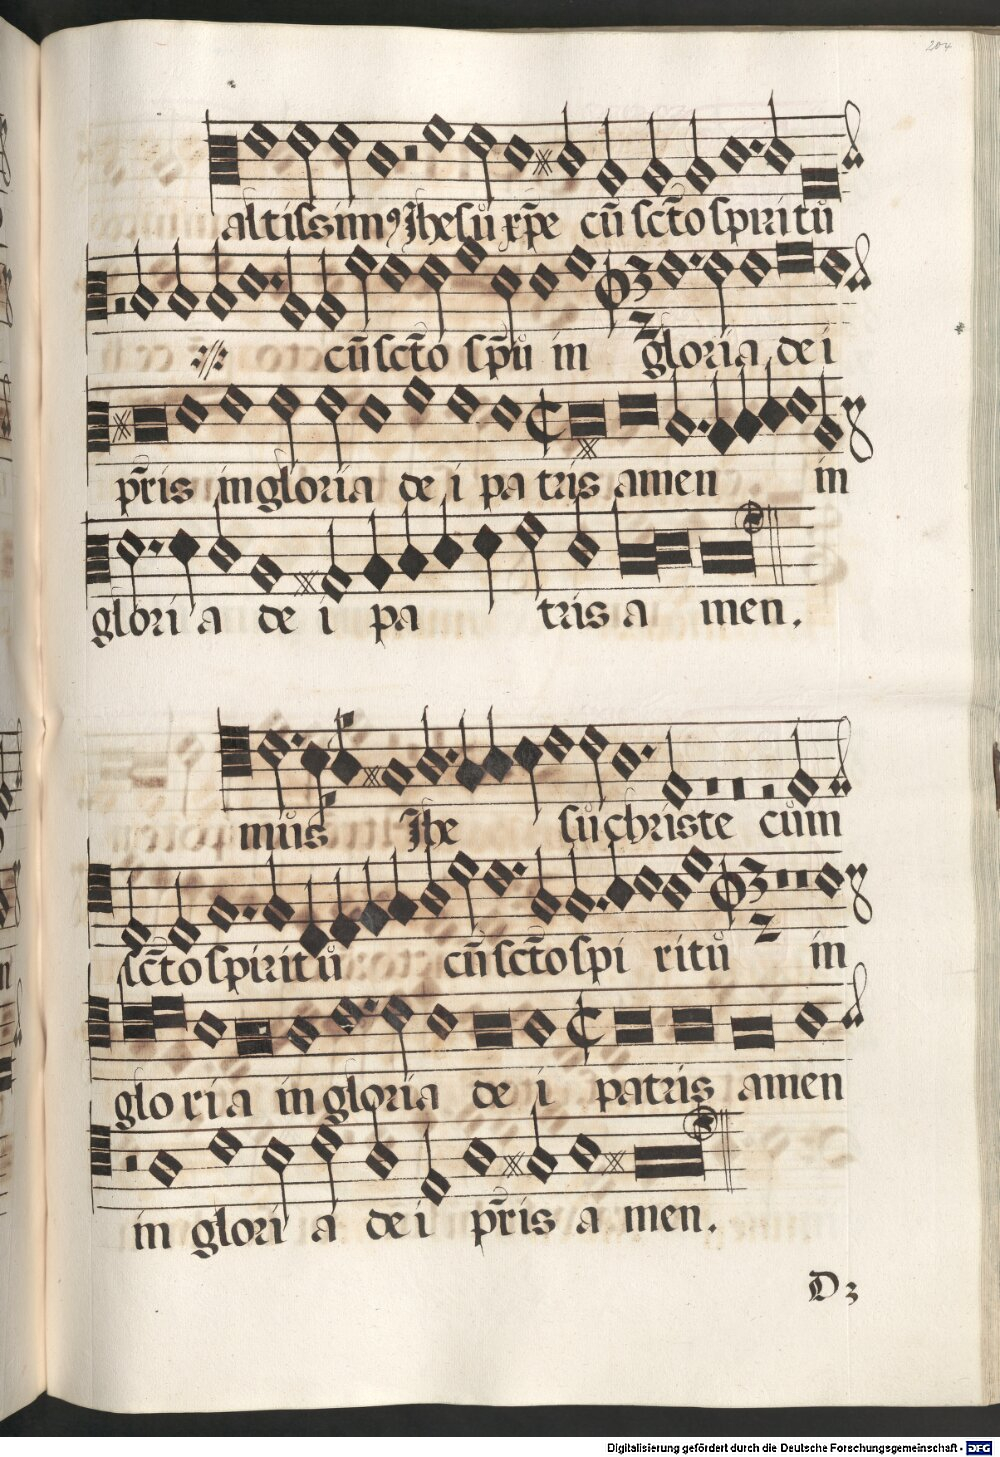 204
altissim9 Jhesu xp̄e cū sc̄to spiritū
:// cū sc̄to sp̄ū in gloria de i
pr̄is in gloria de i pa tris amen in
glori a de i pa tris a men.
mus Jhe su christe cum
sc̄to spiritū cū sc̄to spi ritū in
glo ri a in gloria de i patris amen
in glori a de i pr̄is a men.
D 3
Digitalisierung gefördert durch die Deutsche Forschungsgemeinschaft - DFG